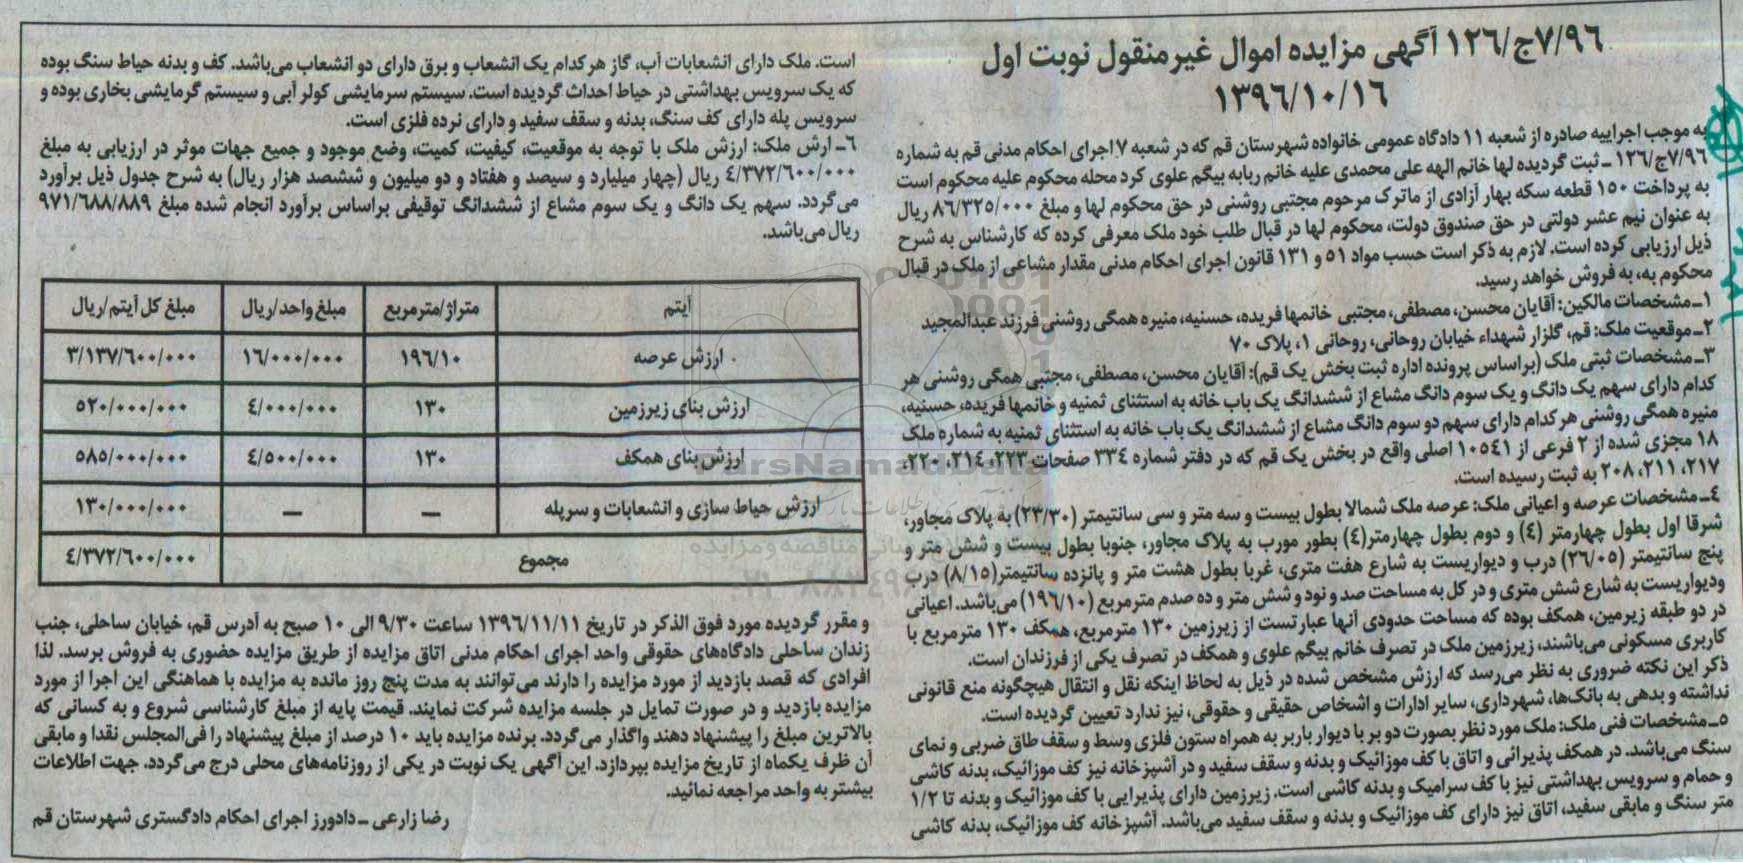 ۷/۹۶ج/۱۲۶ آگهی مزایده اموال غیرمنقول نوبت اول
۱۳۹۶/۱۰/۱۶
به موجب اجراییه صادره از شعبه ۱۱ دادگاه عمومی خانواده شهرستان قم که در شعبه ۷ اجرای احکام مدنی قم به شماره
۷/۹۶ج/۱۲۶ ـ ثبت گردیده لها خانم الهه علی محمدی علیه خانم ربابه بیگم علوی کرد محله محکوم علیه محکوم است
به پرداخت ۱۵۰ قطعه سکه بهار آزادی از ماترک مرحوم مجتبی روشنی در حق محکوم لها و مبلغ ۸۶/۳۲۵/۰۰۰ ریال
به عنوان نیم عشر دولتی در حق صندوق دولت، محکوم لها در قبال طلب خود ملک معرفی کرده که کارشناس به شرح
ذیل ارزیابی کرده است. لازم به ذکر است حسب مواد ۵۱ و ۱۳۱ قانون اجرای احکام مدنی مقدار مشاعی از ملک در قبال
محکوم به، به فروش خواهد رسید.
۱ـ مشخصات مالکین: آقایان محسن، مصطفی، مجتبی خانمها فریده، حسنیه، منیره همگی روشنی فرزند عبدالمجید
۲ـ موقعیت ملک: قم، گلزار شهداء خیابان روحانی، روحانی ۱، پلاک ۷۰
۳ـ مشخصات ثبتی ملک (براساس پرونده اداره ثبت بخش یک قم): آقایان محسن، مصطفی، مجتبی همگی روشنی هر
کدام دارای سهم یک دانگ و یک سوم دانگ مشاع از ششدانگ یک باب خانه به استثنای ثمنیه و خانمها فریده، حسنیه،
منیره همگی روشنی هر کدام دارای سهم دو سوم دانگ مشاع از ششدانگ یک باب خانه به استثنای ثمنیه به شماره ملک
۱۸ مجزی شده از ۲ فرعی از ۱۰۵۴۱ اصلی واقع در بخش یک قم که در دفتر شماره ۳۳۴ صفحات ۲۲۳، ۲۱۴، ۲۲۰،
۲۱۷، ۲۱۱، ۲۰۸ به ثبت رسیده است.
۴ـ مشخصات عرصه و اعیانی ملک: عرصه ملک شمالا بطول بیست و سه متر و سی سانتیمتر (۲۳/۳۰) به پلاک مجاور،
شرقا اول بطول چهارمتر (۴) و دوم بطول چهارمتر(۴) بطور مورب به پلاک مجاور، جنوبا بطول بیست و شش متر و
پنج سانتیمتر (۲۶/۰۵) درب و دیواریست به شارع هفت متری، غربا بطول هشت متر و پانزده سانتیمتر(۸/۱۵) درب
ودیواریست به شارع شش متری و در کل به مساحت صد و نود و شش متر و ده صدم مترمربع (۱۹۶/۱۰) می‌باشد. اعیانی
در دو طبقه زیرمین، همکف بوده که مساحت حدودی آنها عبارتست از زیرزمین ۱۳۰ مترمربع، همکف ۱۳۰ مترمربع با
کاربری مسکونی می‌باشند، زیرزمین ملک در تصرف خانم بیگم علوی و همکف در تصرف یکی از فرزندان است.
ذکر این نکته ضروری به نظر می‌رسد که ارزش مشخص شده در ذیل به لحاظ اینکه نقل و انتقال هیچگونه منع قانونی
نداشته و بدهی به بانک‌ها، شهرداری، سایر ادارات و اشخاص حقیقی و حقوقی، نیز ندارد تعیین گردیده است.
۵ـ مشخصات فنی ملک: ملک مورد نظر بصورت دو بر با دیوار باربر به همراه ستون فلزی وسط و سقف طاق ضربی و نمای
سنگ می‌باشد. در همکف پذیرائی و اتاق با کف موزائیک و بدنه و سقف سفید و در آشپزخانه نیز کف موزائیک، بدنه کاشی
و حمام و سرویس بهداشتی نیز با کف سرامیک و بدنه کاشی است. زیرزمین دارای پذیرایی با کف موزائیک و بدنه تا ۱/۲
متر سنگ و مابقی سفید، اتاق نیز دارای کف موزائیک و بدنه و سقف سفید می‌باشد. آشپزخانه کف موزائیک، بدنه کاشی
است. ملک دارای انشعابات آب، گاز هر کدام یک انشعاب و برق دارای دو انشعاب می‌باشد. کف و بدنه حیاط سنگ بوده
که یک سرویس بهداشتی در حیاط احداث گردیده است. سیستم سرمایشی کولر آبی و سیستم گرمایشی بخاری بوده و
سرویس پله دارای کف سنگ، بدنه و سقف سفید و دارای نرده فلزی است.
۶ـ ارش ملک: ارزش ملک با توجه به موقعیت، کیفیت، کمیت، وضع موجود و جمیع جهات موثر در ارزیابی به مبلغ
۴/۳۷۲/۶۰۰/۰۰۰ ریال (چهار میلیارد و سیصد و هفتاد و دو میلیون و ششصد هزار ریال) به شرح جدول ذیل برآورد
می‌گردد. سهم یک دانگ و یک سوم مشاع از ششدانگ توقیفی براساس برآورد انجام شده مبلغ ۹۷۱/۶۸۸/۸۸۹
ریال می‌باشد.
آیتم متراژ/مترمربع مبلغ واحد/ریال مبلغ کل آیتم/ریال
ارزش عرصه ۱۹۶/۱۰ ۱۶/۰۰۰/۰۰۰ ۳/۱۳۷/۶۰۰/۰۰۰
ارزش بنای زیرزمین ۱۳۰ ۴/۰۰۰/۰۰۰ ۵۲۰/۰۰۰/۰۰۰
ارزش بنای همکف ۱۳۰ ۴/۵۰۰/۰۰۰ ۵۸۵/۰۰۰/۰۰۰
ارزش حیاط سازی و انشعابات و سرپله — — ۱۳۰/۰۰۰/۰۰۰
مجموع ۴/۳۷۲/۶۰۰/۰۰۰
و مقرر گردیده مورد فوق الذکر در تاریخ ۱۳۹۶/۱۱/۱۱ ساعت ۹/۳۰ الی ۱۰ صبح به آدرس قم، خیابان ساحلی، جنب
زندان ساحلی دادگاه‌های حقوقی واحد اجرای احکام مدنی اتاق مزایده از طریق مزایده حضوری به فروش برسد. لذا
افرادی که قصد بازدید از مورد مزایده را دارند می‌توانند به مدت پنج روز مانده به مزایده با هماهنگی این اجرا از مورد
مزایده بازدید و در صورت تمایل در جلسه مزایده شرکت نمایند. قیمت پایه از مبلغ کارشناسی شروع و به کسانی که
بالاترین مبلغ را پیشنهاد دهند واگذار می‌گردد. برنده مزایده باید ۱۰ درصد از مبلغ پیشنهاد را فی‌المجلس نقدا و مابقی
آن ظرف یکماه از تاریخ مزایده بپردازد. این آگهی یک نوبت در یکی از روزنامه‌های محلی درج می‌گردد. جهت اطلاعات
بیشتر به واحد مراجعه نمائید.
رضا زارعی ـ دادورز اجرای احکام دادگستری شهرستان قم
ParsNamadData